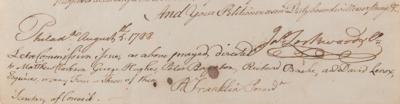 And Your Petitioner as in Duty bound will ever Pray &c.
Philada August 5. 1788 Jos. Lockwood
Let a Commission issue, as above prayed directed
to Matthew Clarkson, George Hughes, Peter Baynton, Richard Bache, & David Lenox,
Esquires, or any four or three of them
B Franklin Presidt.
Secretary of Council